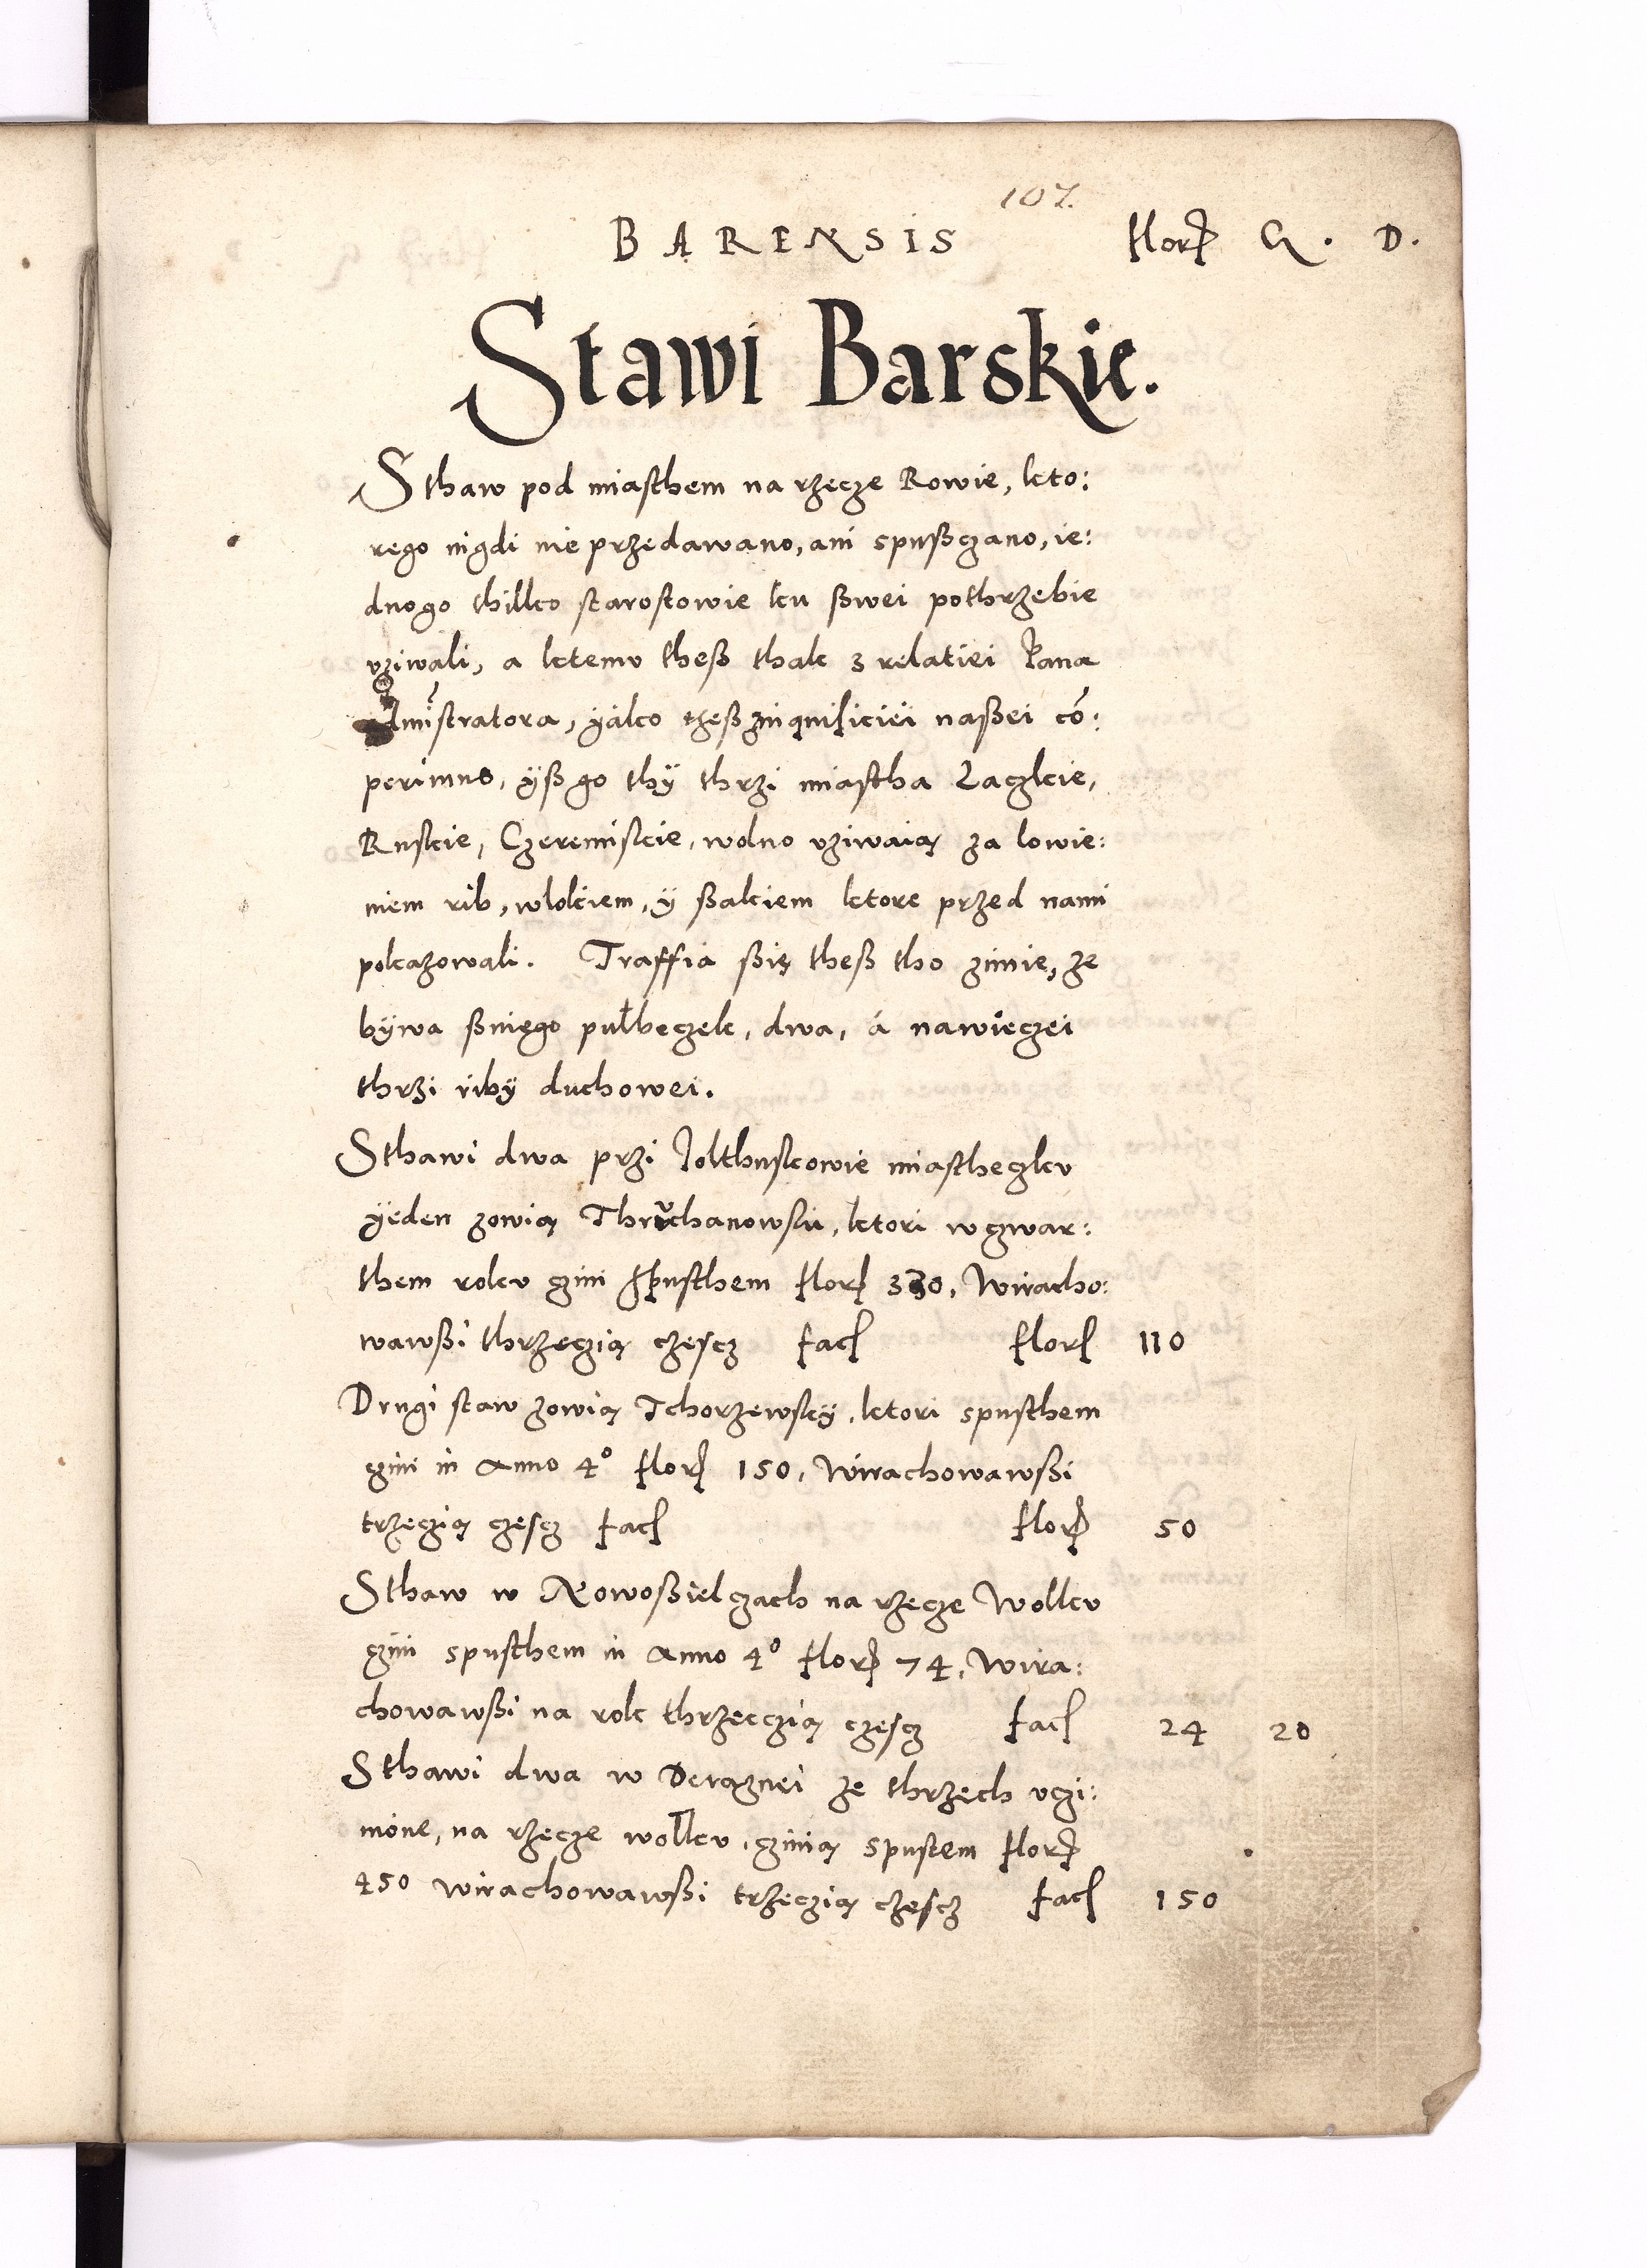 107.
BARENSIS florẽ G. D.
Stawi Barskie.
Sthaw pod miasthem na rzecze Rowie, kto:
rego nigdi nie przedawano, ani spußczano, ie:
dnogo thilko starostowie ku ßwei pothrzebie
vziwali, a ktemv theß thak z relatiei Pana
Admistratora, yáko theß zinquisiciéi naßei cō:
perimus, ÿß go thÿ thrzi miastha Laczkie,
Ruskie, Czeremiskie, wolno vziwaią za lowie:
niem rib, wlokiem, ÿ ßakiem ktore przed nami
pokazowali. Traffia ßię theß tho zimie, ze
bÿwa ßniego pułbeczek, dwa, á nawieczei
thrzi ribÿ duchowei.
Sthawi dwa przi Jolthuskowie miastheczkv
ÿeden zowią Thruchanowski, ktori w czwar:
them rokv czini spusthem florẽ 330, Wiracho:
wawßi thrzeczią częscz facẽ florẽ 110
Drugi staw zowią Tchorzewskÿ, ktori spusthem
czini in Anno 4º florẽ 150, Wirachowawßi
trzeczią częscz facẽ florẽ 50
Sthaw w Nowoßielczach na rzecze Wolkv
czini spusthem in Anno 4º florẽ 74, Wira:
chowawßi na rok thrzeczią częscz facẽ 24 20
Sthawi dwa w Deraznei ze thrzech vczi:
nióne, na rzecze wolkv, czinią spustem florẽ
450 wirachowawßi trzeczią częscz facẽ 150